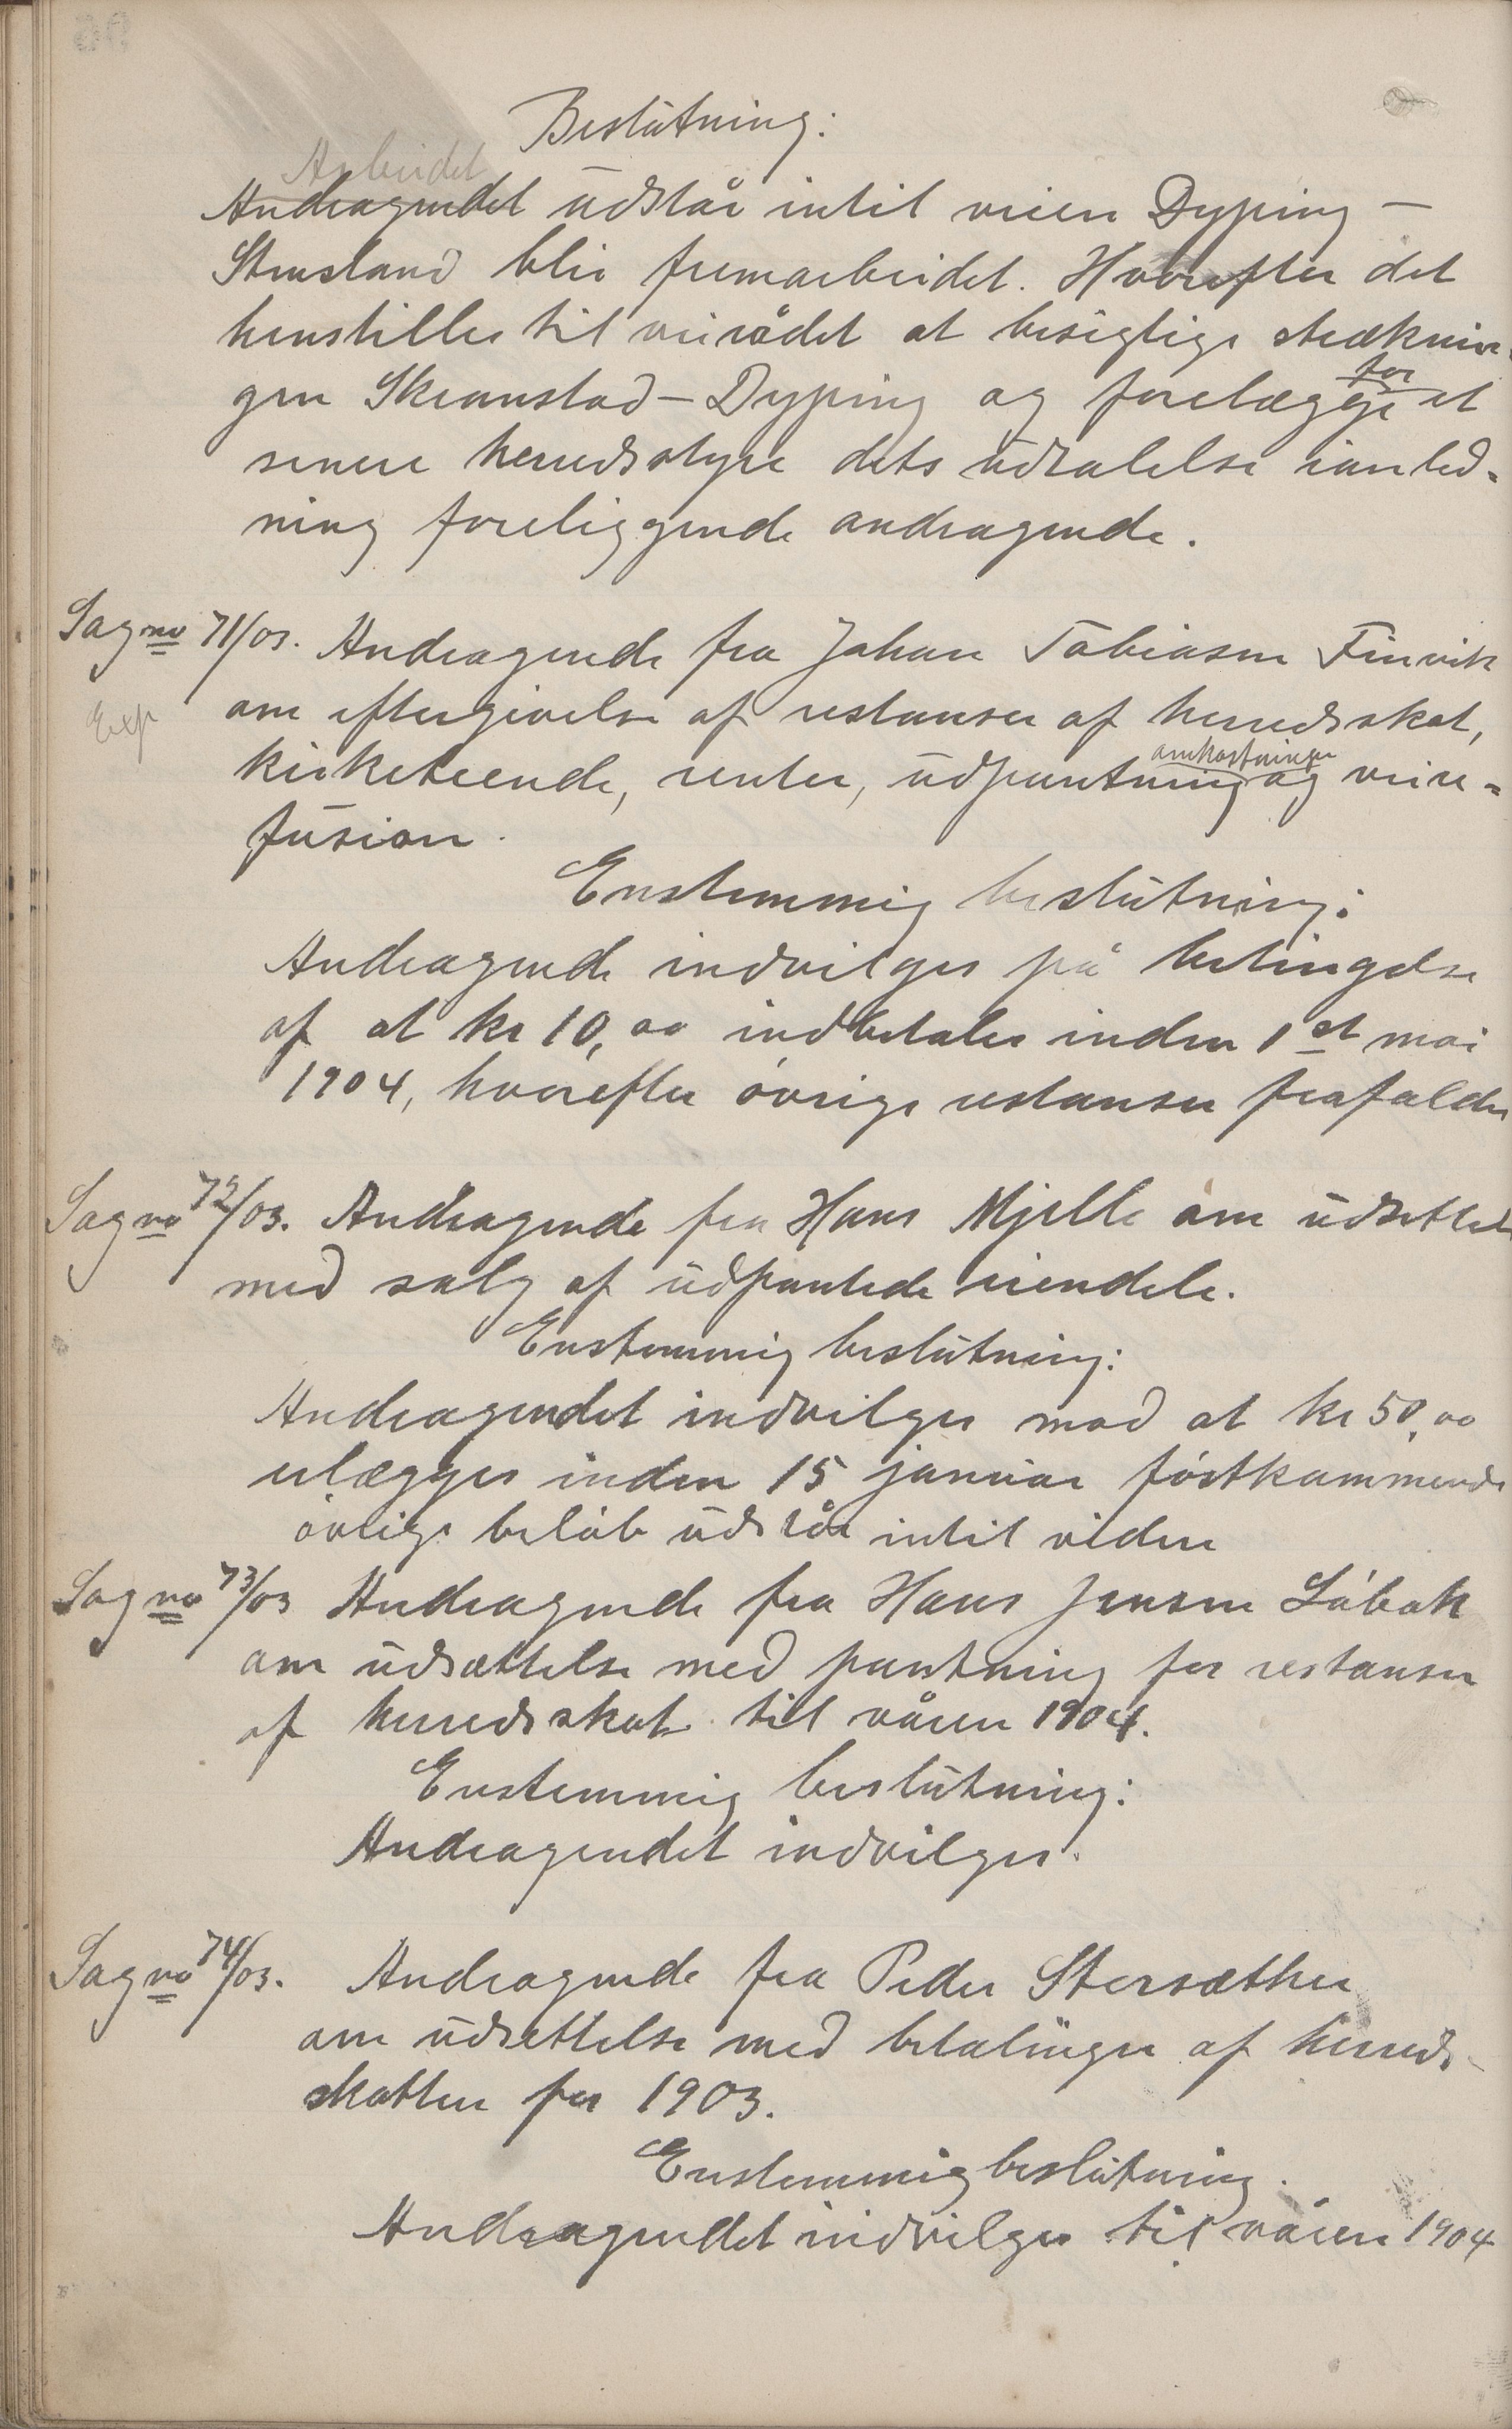 Beslutning:
Arbeidet
Andragendet udstår intil veien Dyping –
Stensland blir fremarbeidet. Hvorefter det
henstilles til veirådet at besigtige stræknin-
gen Skranstad – Dyping og forelægge for et
senere herredsstyre dets udtalelse i anled-
ning foreliggende andragende.
Sag no 71/03. Andragende fra Johan Tobiasen Finvik
Exp
om eftergivelse af restanser af herredsskat,
omkostninger
kirketiende, renter, udpantning og veire-
fusion.
Enstemmig beslutning:
Andragende indvilges på betingelse
af at kr 10,00 indbetales inden 1st mai
1904, hvorefter øvrige restanser frafaldes
Sag no 72/03. Andragende fra Hans Mjelle om udsettelse
med salg af udpantede eiendele.
Enstemmig beslutning:
Andragendet indvilges mod at kr 50,00
erlægges inden 15 januar førstkommende
øvrige beløb udstår intil videre
Sag no 73/03 Andragende fra Hans Jensen Løbak
om udsættelse med pantning for restanser
af herredsskat til våren 1904.
Enstemmig beslutning:
Andragendet indvilges.
Sag no 74/03. Andragende fra Peder Storsæther
om udsettelse med betalingen af herreds-
skatten for 1903.
Enstemmig beslutning.
Andragendet indvilges til våren 1904